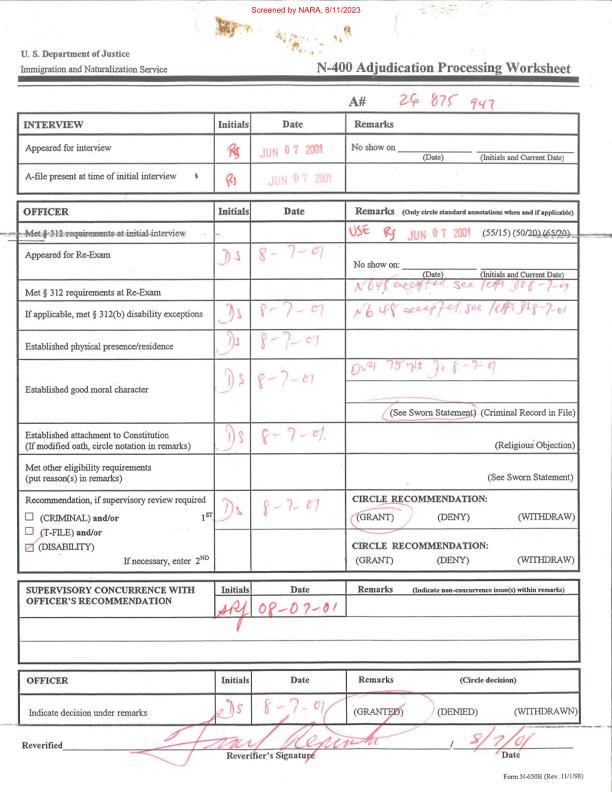 Screened by NARA, 8/11/2023
U. S. Department of Justice
Immigration and Naturalization Service
N-400 Adjudication Processing Worksheet
A# 26 875 947
INTERVIEW Initials Date Remarks
Appeared for interview RJ JUN 07 2001 No show on
(Date) (Initials and Current Date)
A-file present at time of initial interview RJ JUN 07 2001
OFFICER Initials Date Remarks (Only circle standard annotations when and if applicable)
Met § 312 requirements at initial interview USE RJ JUN 07 2001 (55/15) (50/20) (65/20)
Appeared for Re-Exam DS 8-7-01 No show on:
(Date) (Initials and Current Date)
Met § 312 requirements at Re-Exam N648 accepted. see 8-7-01
If applicable, met § 312(b) disability exceptions DS 8-7-01 N648 accepted. see DS 8-7-01
Established physical presence/residence DS 8-7-01
Established good moral character DS 8-7-01 Over 75 yrs DS 8-7-01
(See Sworn Statement) (Criminal Record in File)
Established attachment to Constitution DS 8-7-01
(If modified oath, circle notation in remarks) (Religious Objection)
Met other eligibility requirements
(put reason(s) in remarks) (See Sworn Statement)
Recommendation, if supervisory review required DS 8-7-01 CIRCLE RECOMMENDATION:
(CRIMINAL) and/or 1ST (GRANT) (DENY) (WITHDRAW)
(T-FILE) and/or
(DISABILITY) CIRCLE RECOMMENDATION:
If necessary, enter 2ND (GRANT) (DENY) (WITHDRAW)
SUPERVISORY CONCURRENCE WITH Initials Date Remarks (Indicate non-concurrence issue(s) within remarks)
OFFICER'S RECOMMENDATION 08-07-01
OFFICER Initials Date Remarks (Circle decision)
Indicate decision under remarks DS 8-7-01 (GRANTED) (DENIED) (WITHDRAWN)
Reverified / 8/7/01
Reverifier's Signature Date
Form N-650B (Rev. 11/1/98)